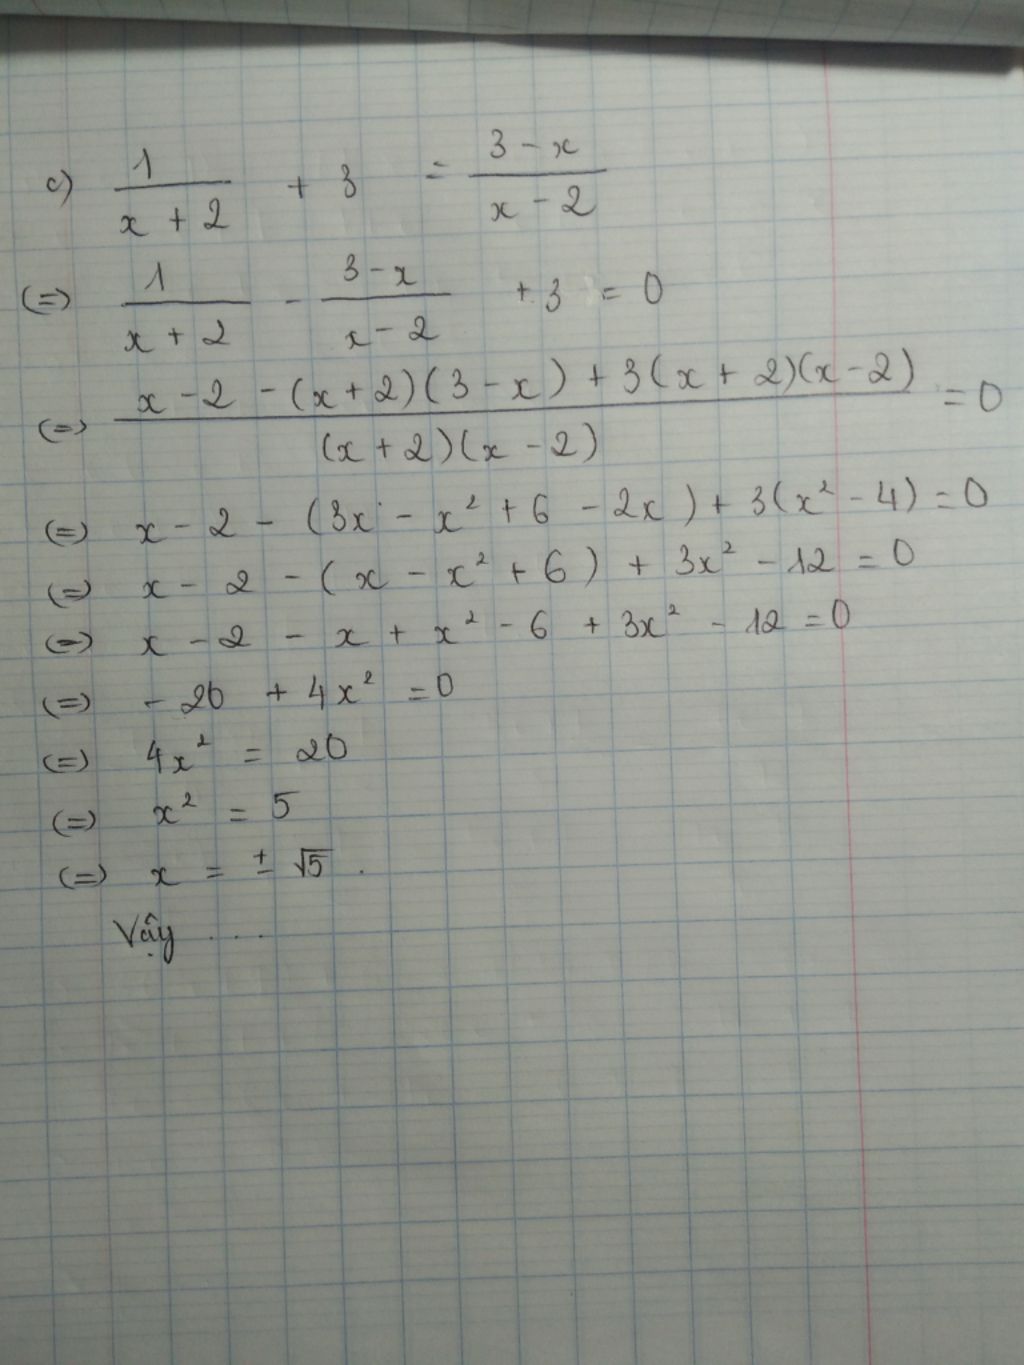 c) 1/(x + 2) + 3 = (3 - x)/(x - 2)
(=) 1/(x + 2) - (3 - x)/(x - 2) + 3 = 0
(=) (x - 2 - (x + 2)(3 - x) + 3(x + 2)(x - 2))/((x + 2)(x - 2)) = 0
(=) x - 2 - (3x - x² + 6 - 2x) + 3(x² - 4) = 0
(=) x - 2 - (x - x² + 6) + 3x² - 12 = 0
(=) x - 2 - x + x² - 6 + 3x² - 12 = 0
(=) - 20 + 4x² = 0
(=) 4x² = 20
(=) x² = 5
(=) x = ± √5 .
Vậy ....